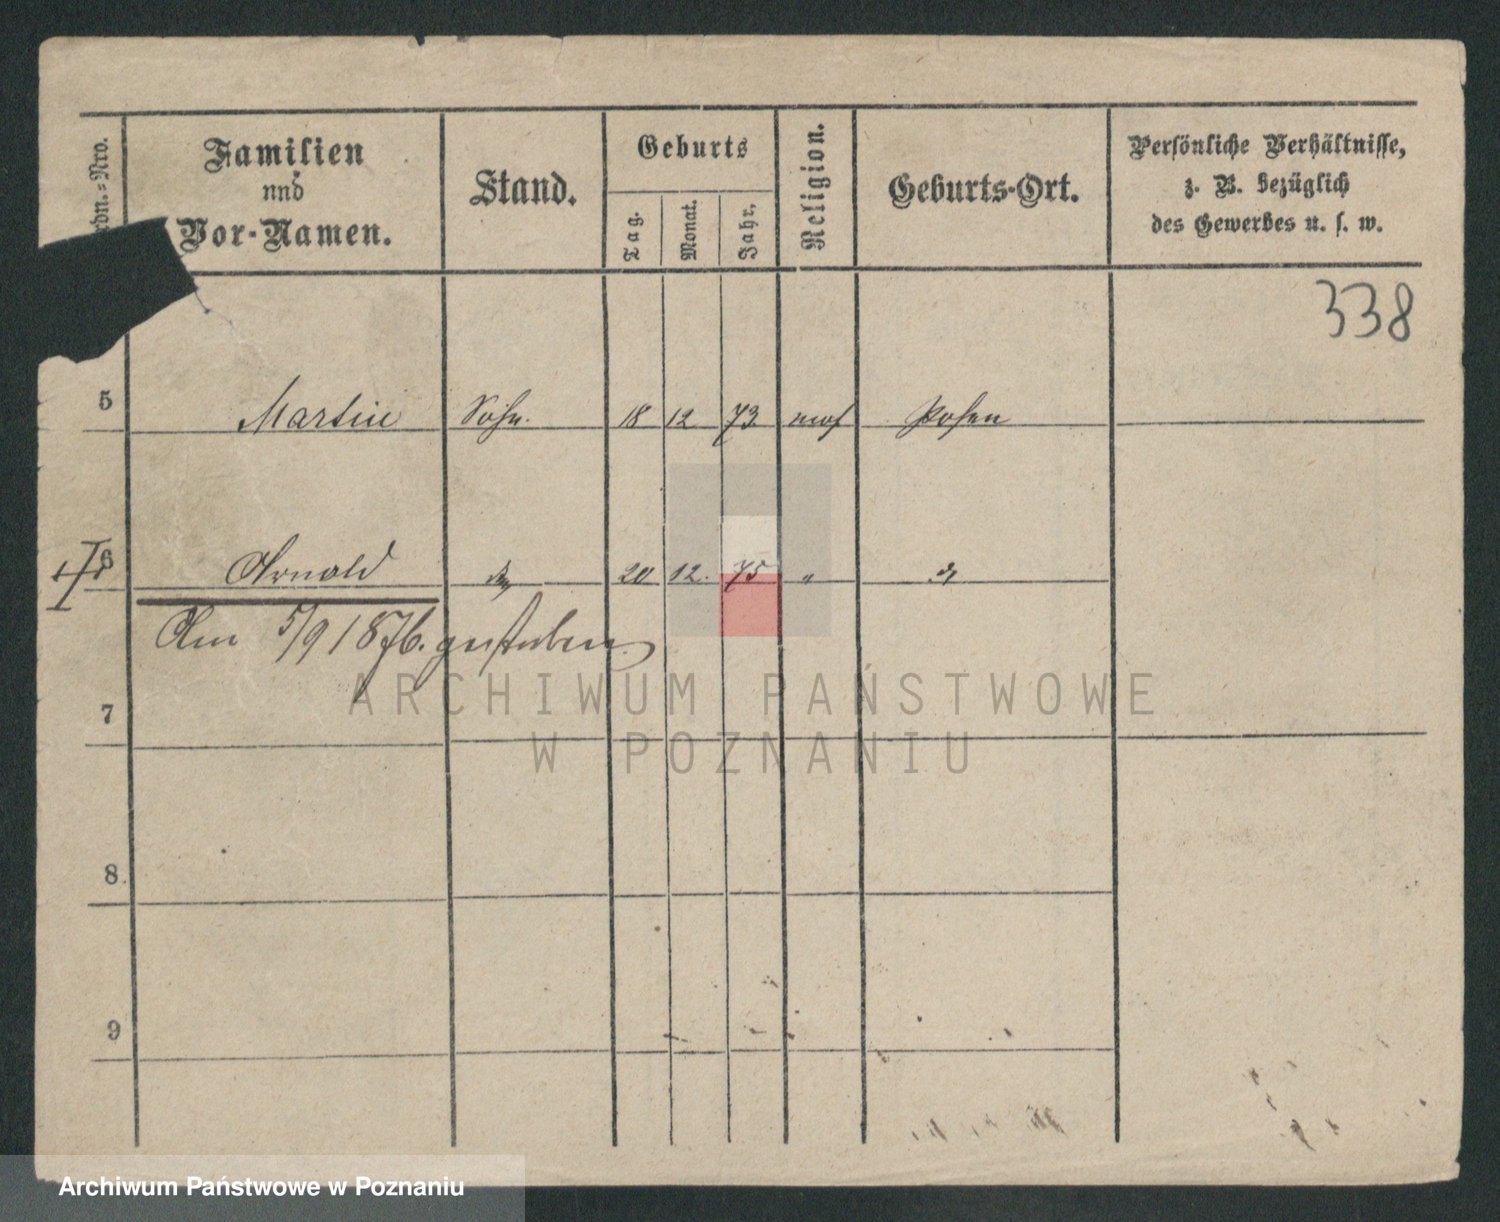 Ordn.=Nro.
Familien
und
Vor-Namen.
Stand.
Geburts
Tag.
Monat.
Jahr.
Religion.
Geburts-Ort.
Persönliche Verhältnisse,
z. B. bezüglich
des Gewerbes u. s. w.
338
5 Martin Sohn. 18 12 73 mos Posen
6 Arnold 20 12. 75 "
Am 5/9 1876. gestorben
7
ARCHIWUM PAŃSTWOWE
W POZNANIU
8
9
Archiwum Państwowe w Poznaniu